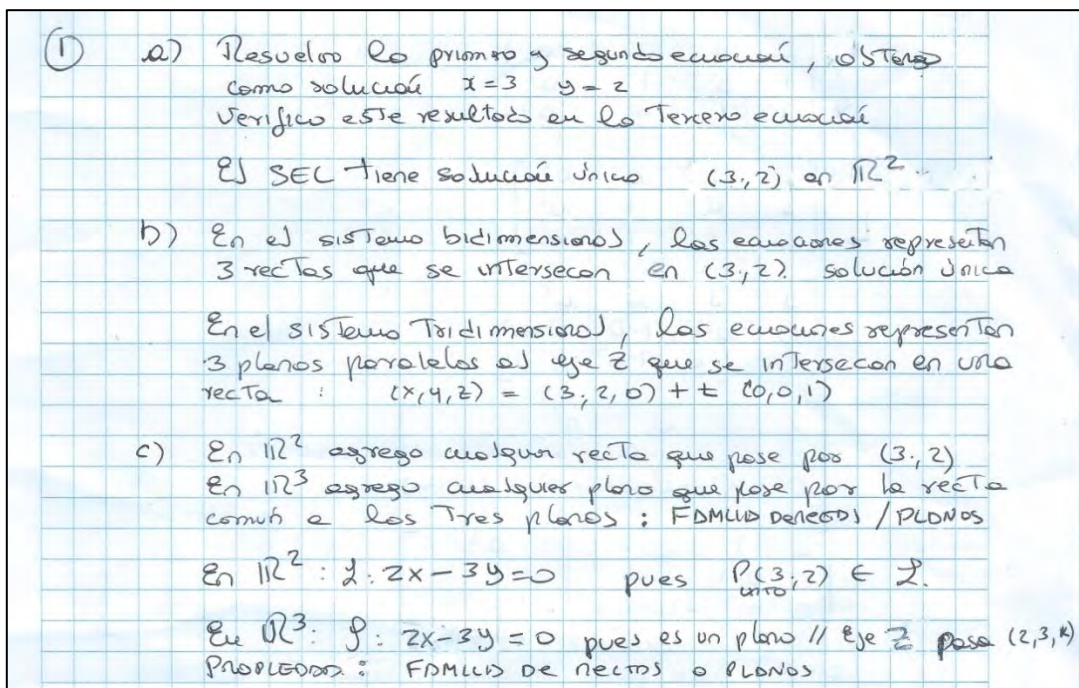 ① a) Resuelvo la primera y segunda ecuación, obtengo
como solución x=3 y=2
Verifico este resultado en la Tercera ecuación
El SEL tiene solución única (3;2) en ℝ²
b) En el sistema bidimensional, las ecuaciones representan
3 rectas que se intersecan en (3;2). solución única
En el sistema Tridimensional, las ecuaciones representan
3 planos paralelos al eje Z que se intersecan en una
recta : (x,y,z) = (3;2,0) + t (0,0,1)
c) En ℝ² agrego cualquier recta que pase por (3;2)
En ℝ³ agrego cualquier plano que pase por la recta
común a los Tres planos : FAMILIA DE RECTAS / PLANOS
En ℝ² : L: 2x-3y=0 pues P(3;2) ∈ L.
punto
En ℝ³: P: 2x-3y=0 pues es un plano // Eje Z pasa (2,3,k)
PROPIEDAD : FAMILIA DE RECTAS O PLANOS